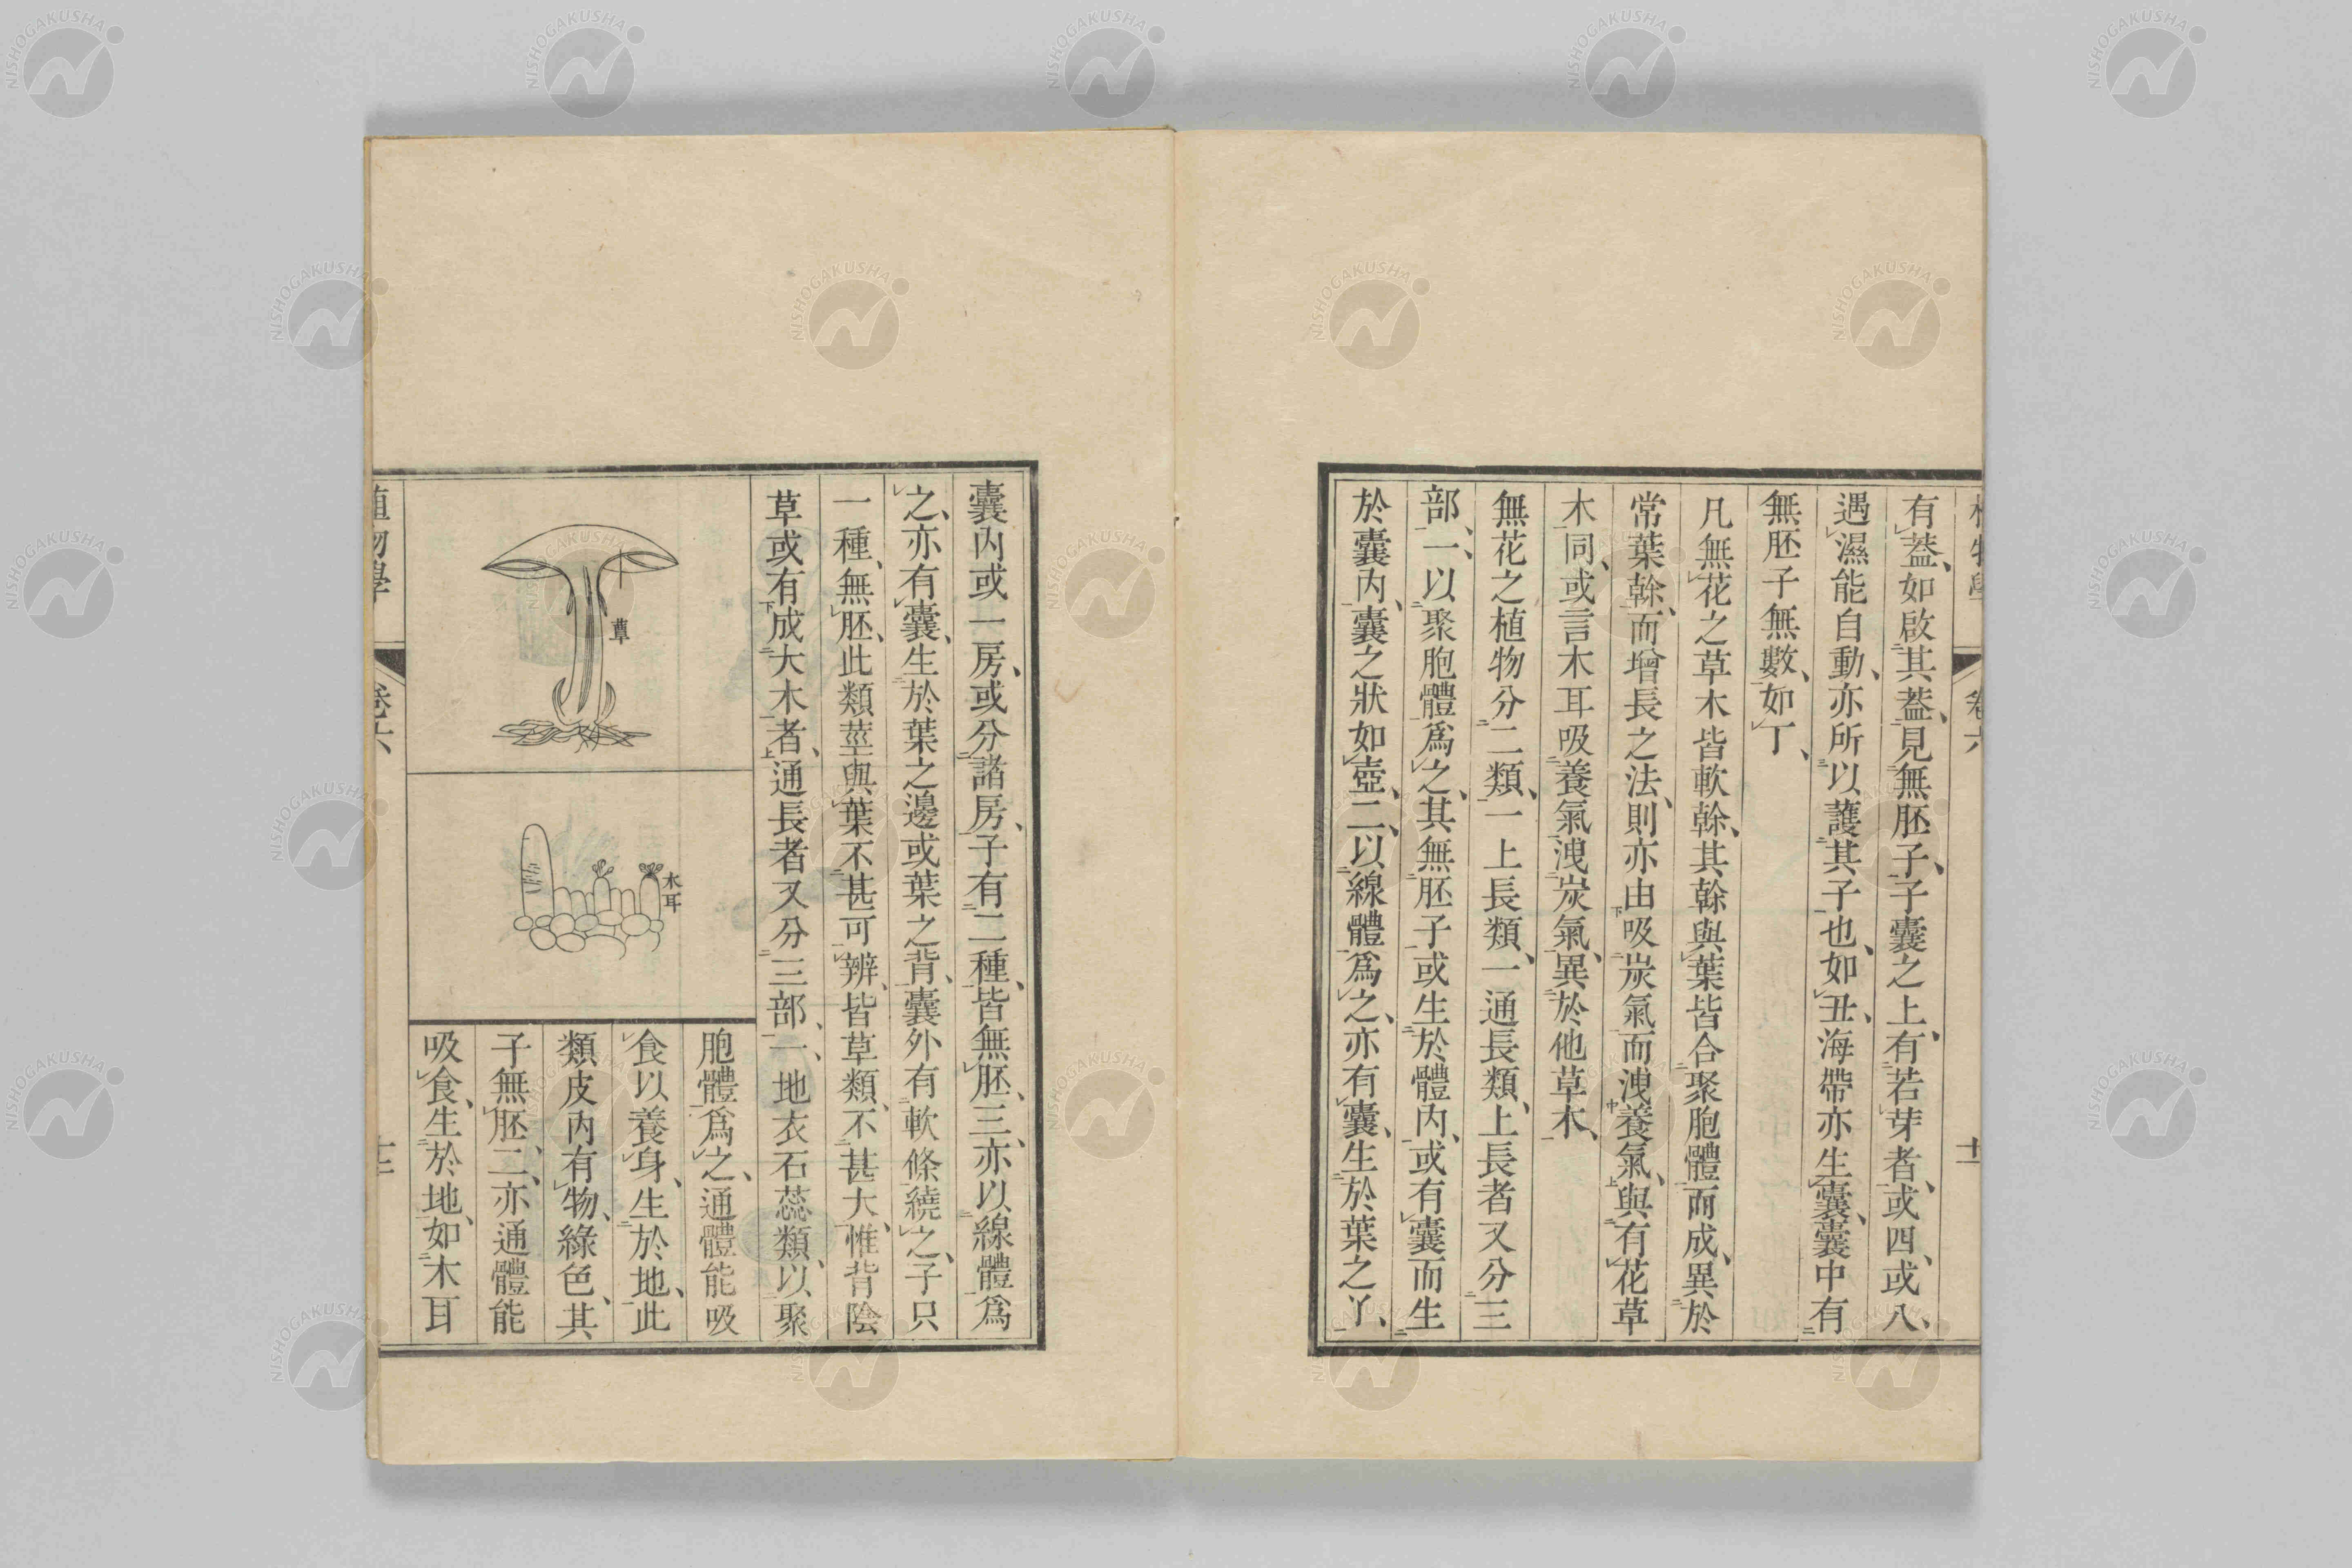 有蓋、如啟其蓋、見無胚子、子囊之上、有若芽者、或四、或八、
遇濕能自動、亦所以護其子也、如丑、海帶亦生囊、囊中有
無胚子無數、如丁、
凡無花之草木皆軟幹、其幹與葉皆合聚胞體而成、異於
常葉幹、而增長之法、則亦由吸炭氣而洩養氣、與有花草
木同、或言木耳吸養氣洩炭氣、異於他草木、
無花之植物分二類、一上長類、一通長類、上長者又分三
部、一、以聚胞體為之、其無胚子或生於體內、或有囊而生
於囊內、囊之狀如壺、二、以線體為之、亦有囊、生於葉之丫、
卷六
十一
囊內或一房、或分諸房、子有二種、皆無胚、三、亦以線體為
之、亦有囊、生於葉之邊或葉之背、囊外有軟條繞之、子只
一種、無胚、此類莖與葉不甚可辨、皆草類、不甚大、惟背陰
草或有成大木者、通長者又分三部、一、地衣石蕊類、以聚
胞體為之、通體能吸
食以養身、生於地、此
類皮內有物、綠色、其
子無胚、二、亦通體能
吸食、生於地、如木耳
蕈
木耳
植物學
卷六
NISHOGAKUSHA